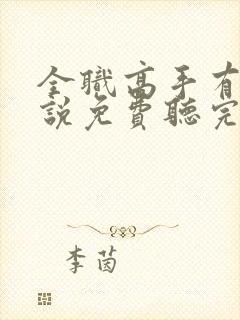 全職高手有
說免費聽完
李茵